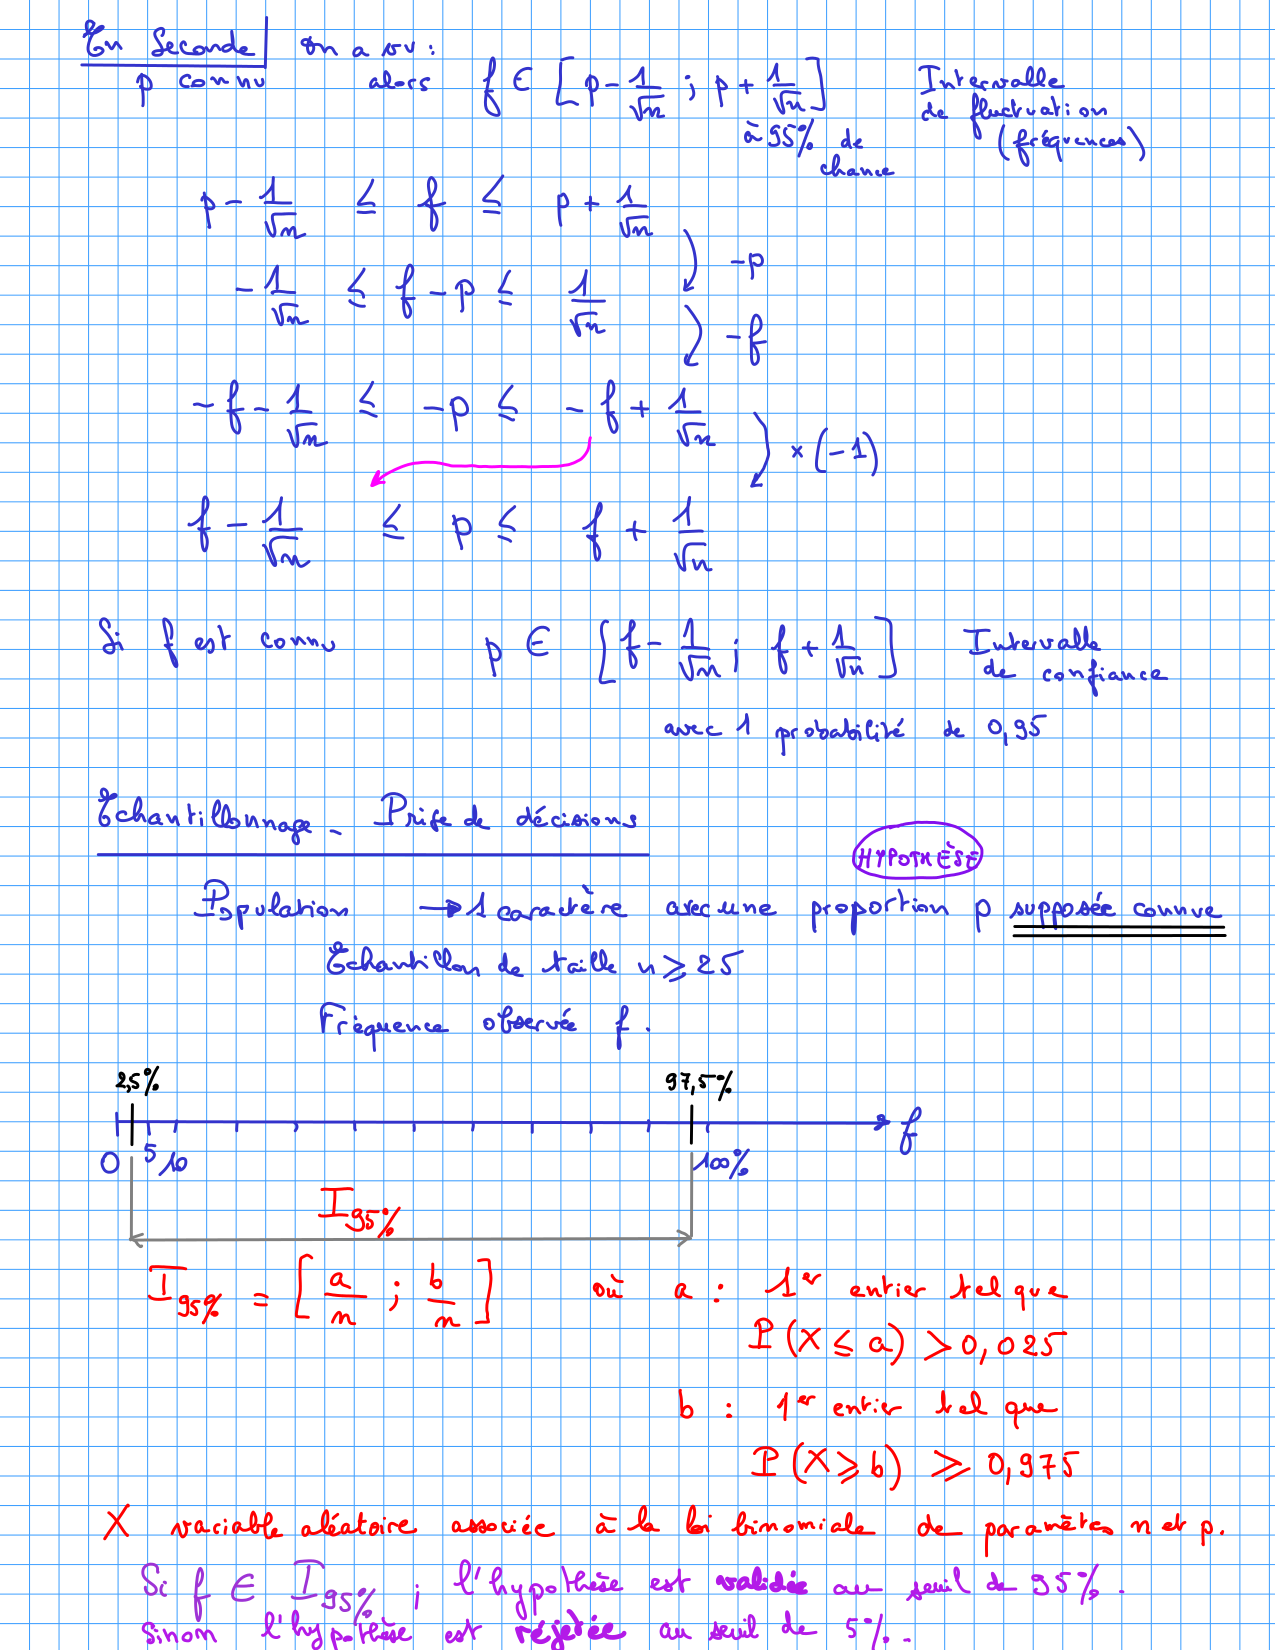 En Seconde on a vu :
p connu alors f ∈ [p - 1/√n ; p + 1/√n] Intervalle
de fluctuation
à 95% de (fréquences)
chance
p - 1/√n ≤ f ≤ p + 1/√n
-p
- 1/√n ≤ f - p ≤ 1/√n
-f
-f - 1/√n ≤ -p ≤ -f + 1/√n
× (-1)
f - 1/√n ≤ p ≤ f + 1/√n
Si f est connu p ∈ [f - 1/√n ; f + 1/√n] Intervalle
de confiance
avec 1 probabilité de 0,95
Echantillonnage - Prise de décisions
HYPOTHÈSE
Population → 1 caractère avec une proportion p supposée connue
Echantillon de taille n ⩾ 25
Fréquence observée f.
2,5% 97,5%
f
0 5 10 100%
I95%
I95% = [a/n ; b/n] où a : 1er entier tel que
P(X ≤ a) > 0,025
b : 1er entier tel que
P(X ⩾ b) ⩾ 0,975
X variable aléatoire associée à la loi binomiale de paramètes n et p.
Si f ∈ I95% ; l'hypothèse est validée au seuil de 95%.
Sinom l'hypothèse est rejetée au seuil de 5%.